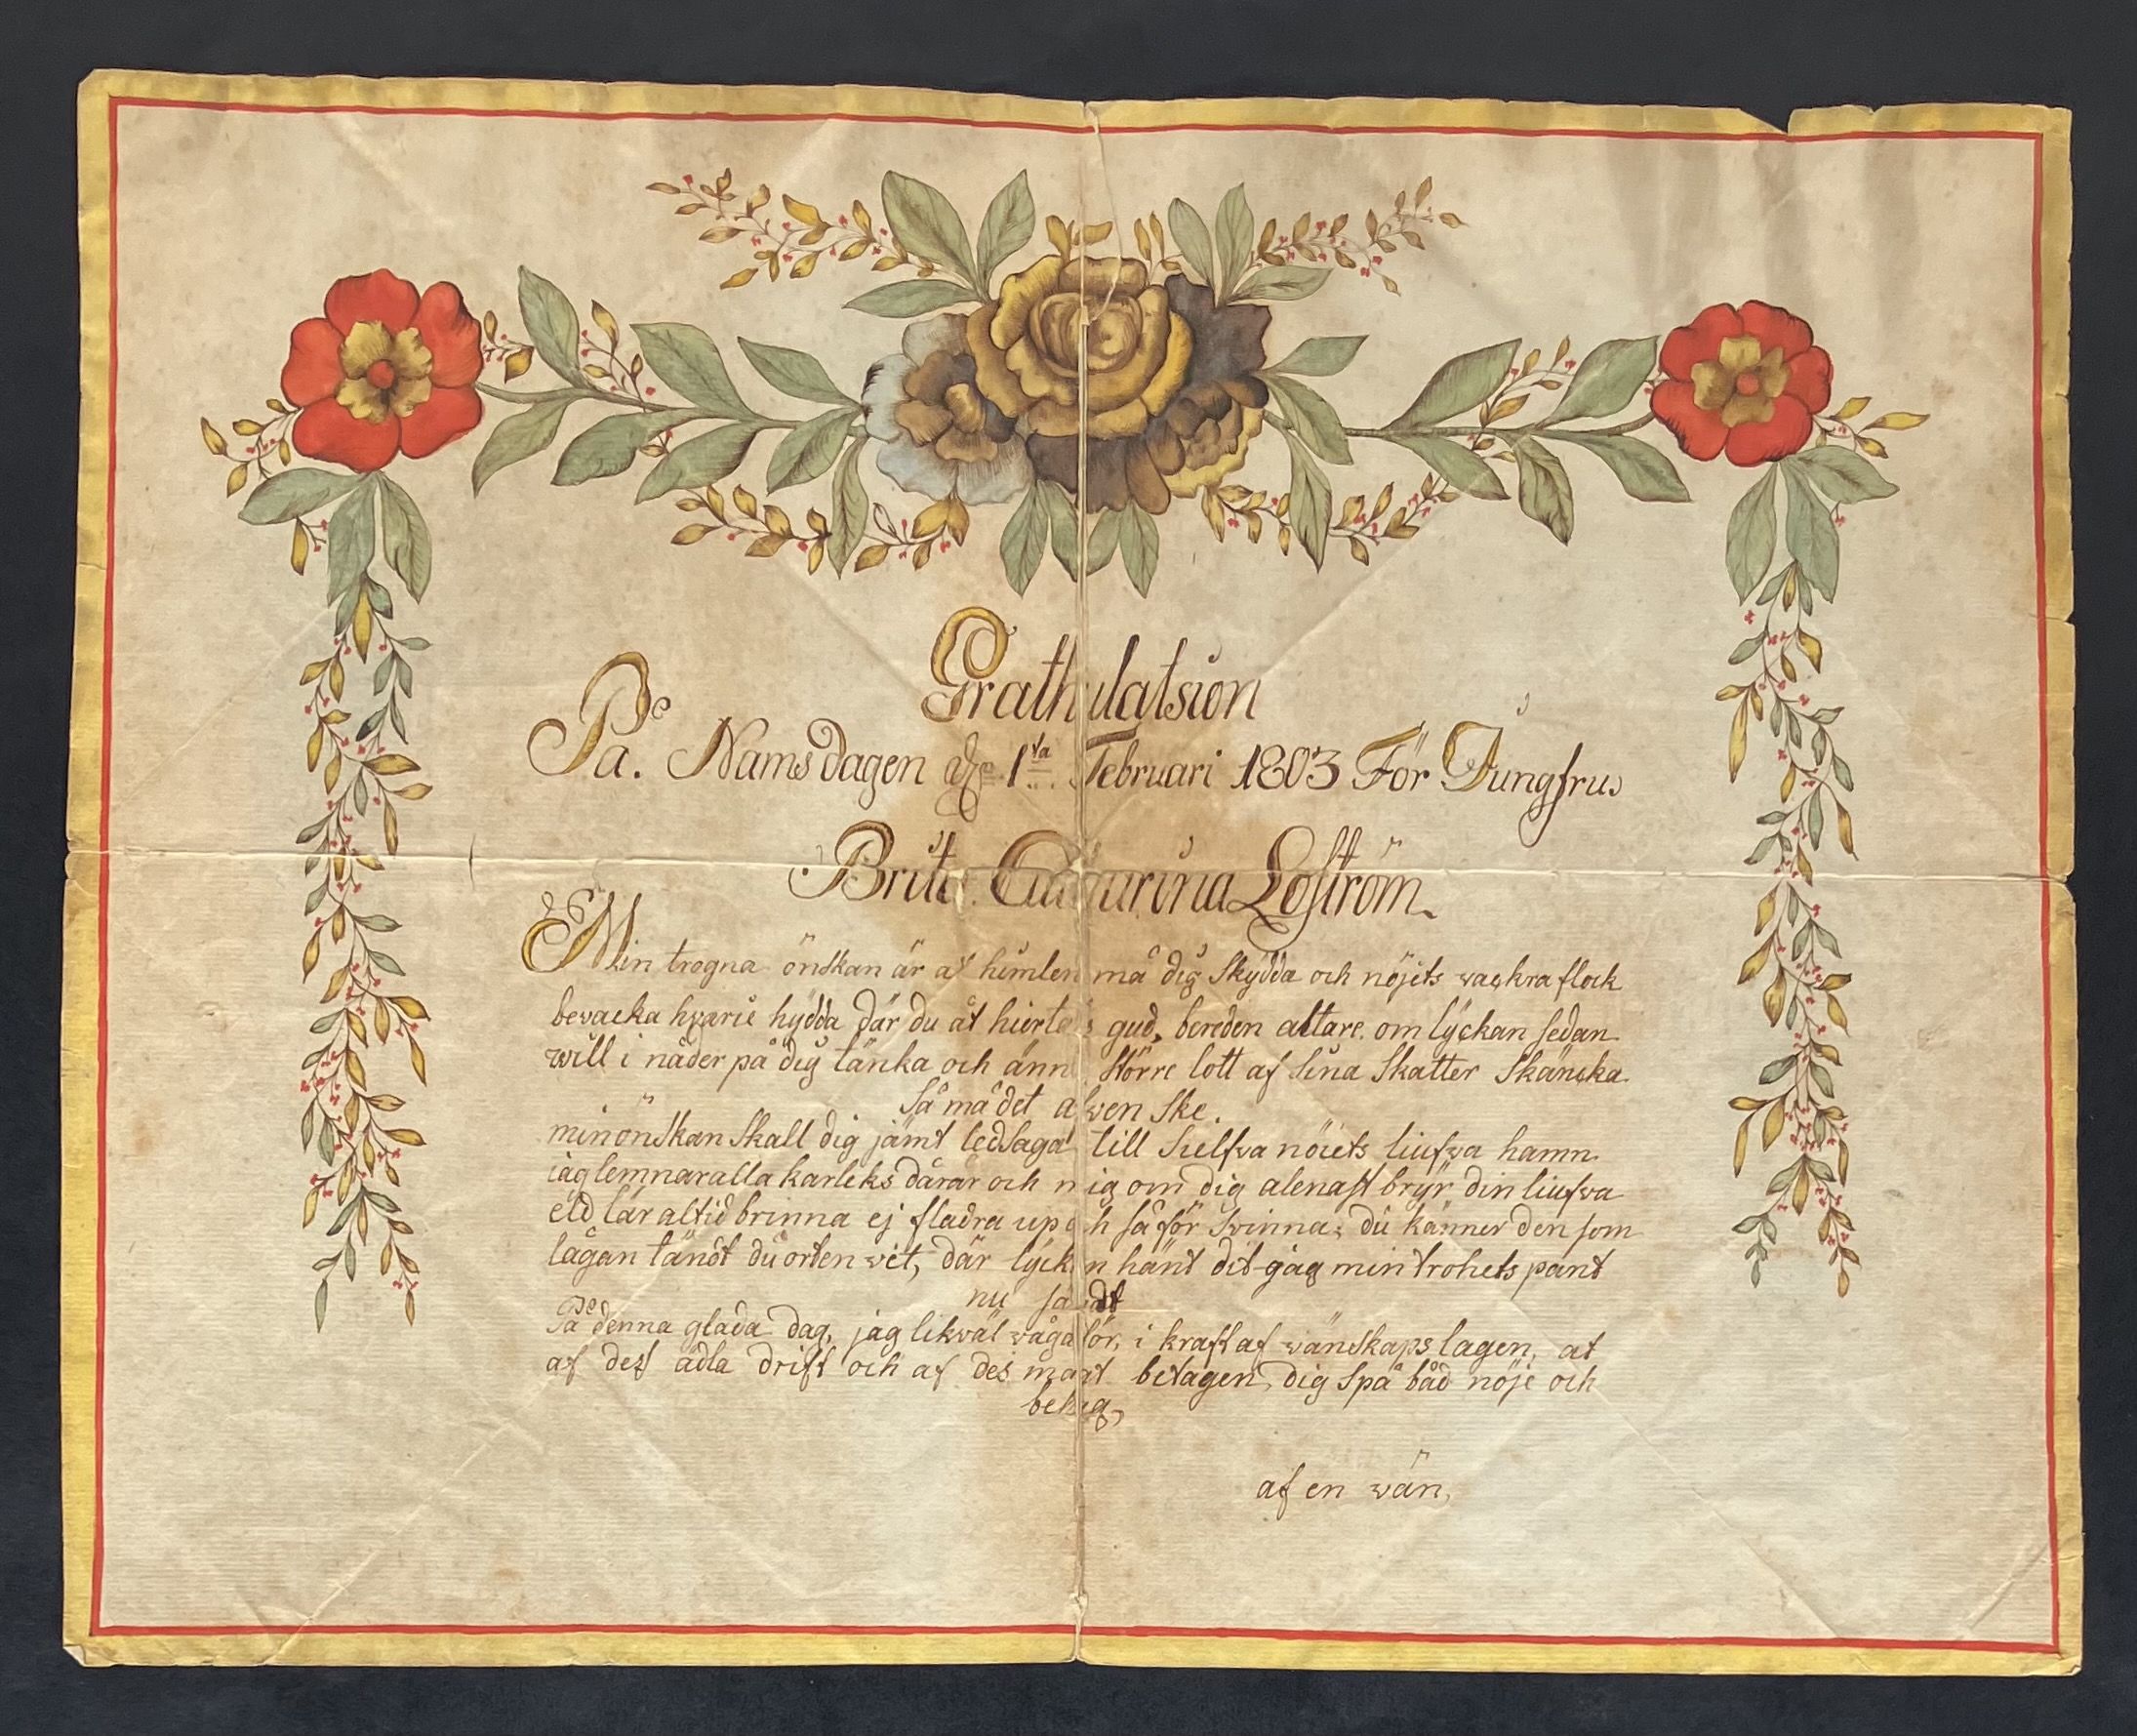 Grathulatsion
På. Namsdagen d. 1ta Februari 1803 För Jungfru
Brita Lofström
Min trogna önskan är at himlen må dig skydda och nöjets vackra flock
bevacka hvarie hydda där du åt hiertats gud, bereden altare. om lyckan sedan
will i nåder på dig tänka och ännu större lott af sina skatter skäncka
så må det afven ske.
min önskan skall dig jämt ledsaga till sielfva nöiets liufva hamn
iag lemnar alla karleks dårar och mig om dig alenast bryr din liufva
eld lär altid brinna ej fladra up och så för svinna; du känner den som
lågan tändt du orten vet, där lyckan händt dit jag min trohets pant
nu sändt
På denna glada dag, jag likväl våga tör, i kraft af wänskaps lagen, at
af dess ädla drift och af des magt betagen, dig spå båd nöje och
behag,
af en vän,